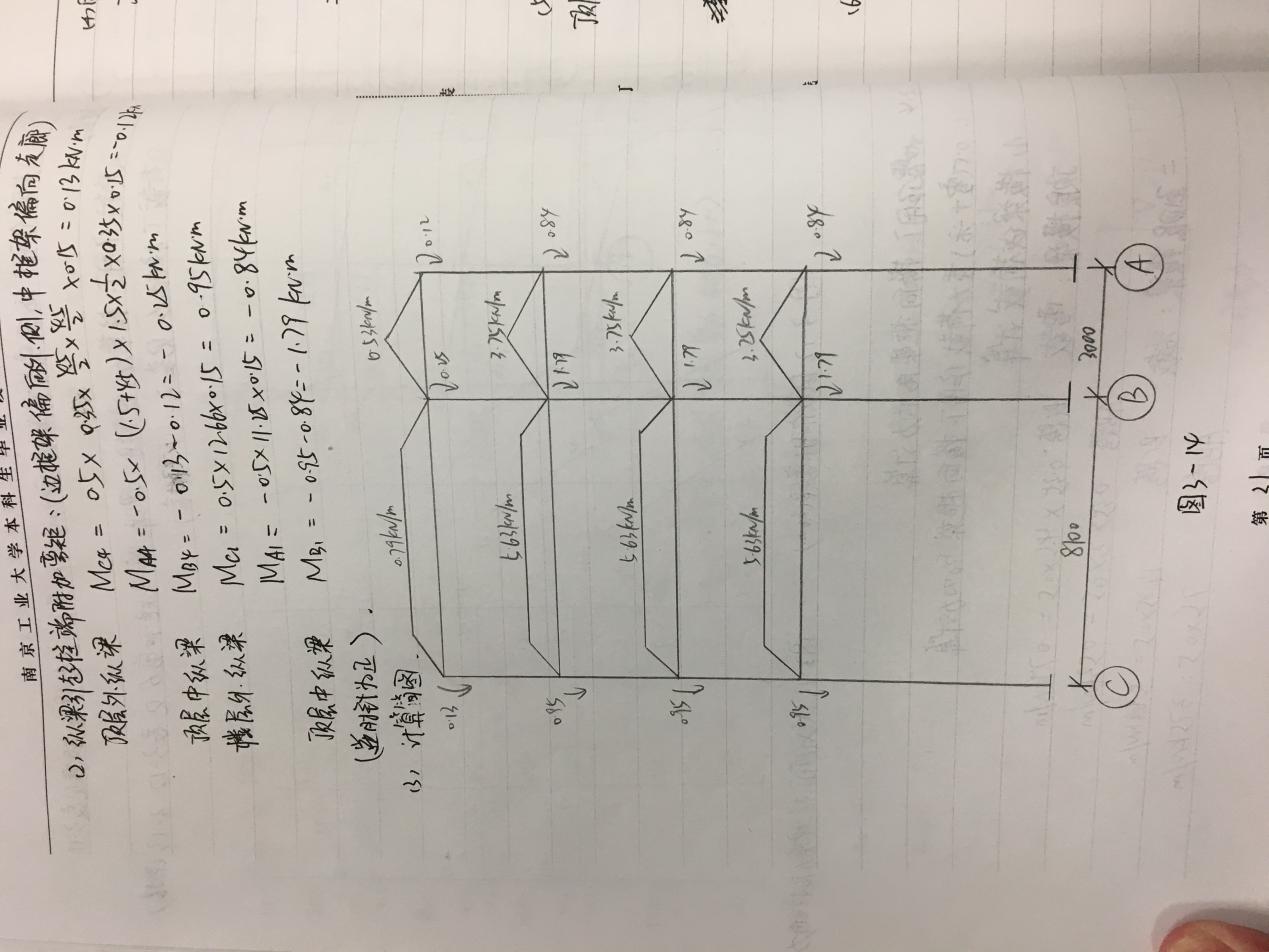 南京工业大学本科生毕业
(2), 纵梁引起柱端附加弯矩:(边框架偏向外侧,中框架偏向走廊)
顶层外纵梁 Mc4 = 0.5× 0.35× 4.5/2 × 4.5/2 ×0.15 = 0.13 kN·m
MA4 = -0.5× (1.5+4.5)×1.5×1/2×0.35×0.15=-0.12
顶层中纵梁 MB4 = -0.13-0.12= -0.25kN·m
楼层外纵梁 Mc1 = 0.5×12.66×0.15= 0.95kN·m
MA1= -0.5×11.15×0.15= -0.84kN·m
顶层中纵梁 MB1 = -0.95-0.84=-1.79 kN·m
(逆时针为正).
(3), 计算简图.
0.79kN/m 0.53kN/m
0.13 0.25 0.12
5.63kN/m 3.75kN/m
0.95 1.79 0.84
5.63kN/m 3.75kN/m
0.95 1.79 0.84
5.63kN/m 3.75kN/m
0.95 1.79 0.84
8100 3000
C B A
图3-14
第 31 页